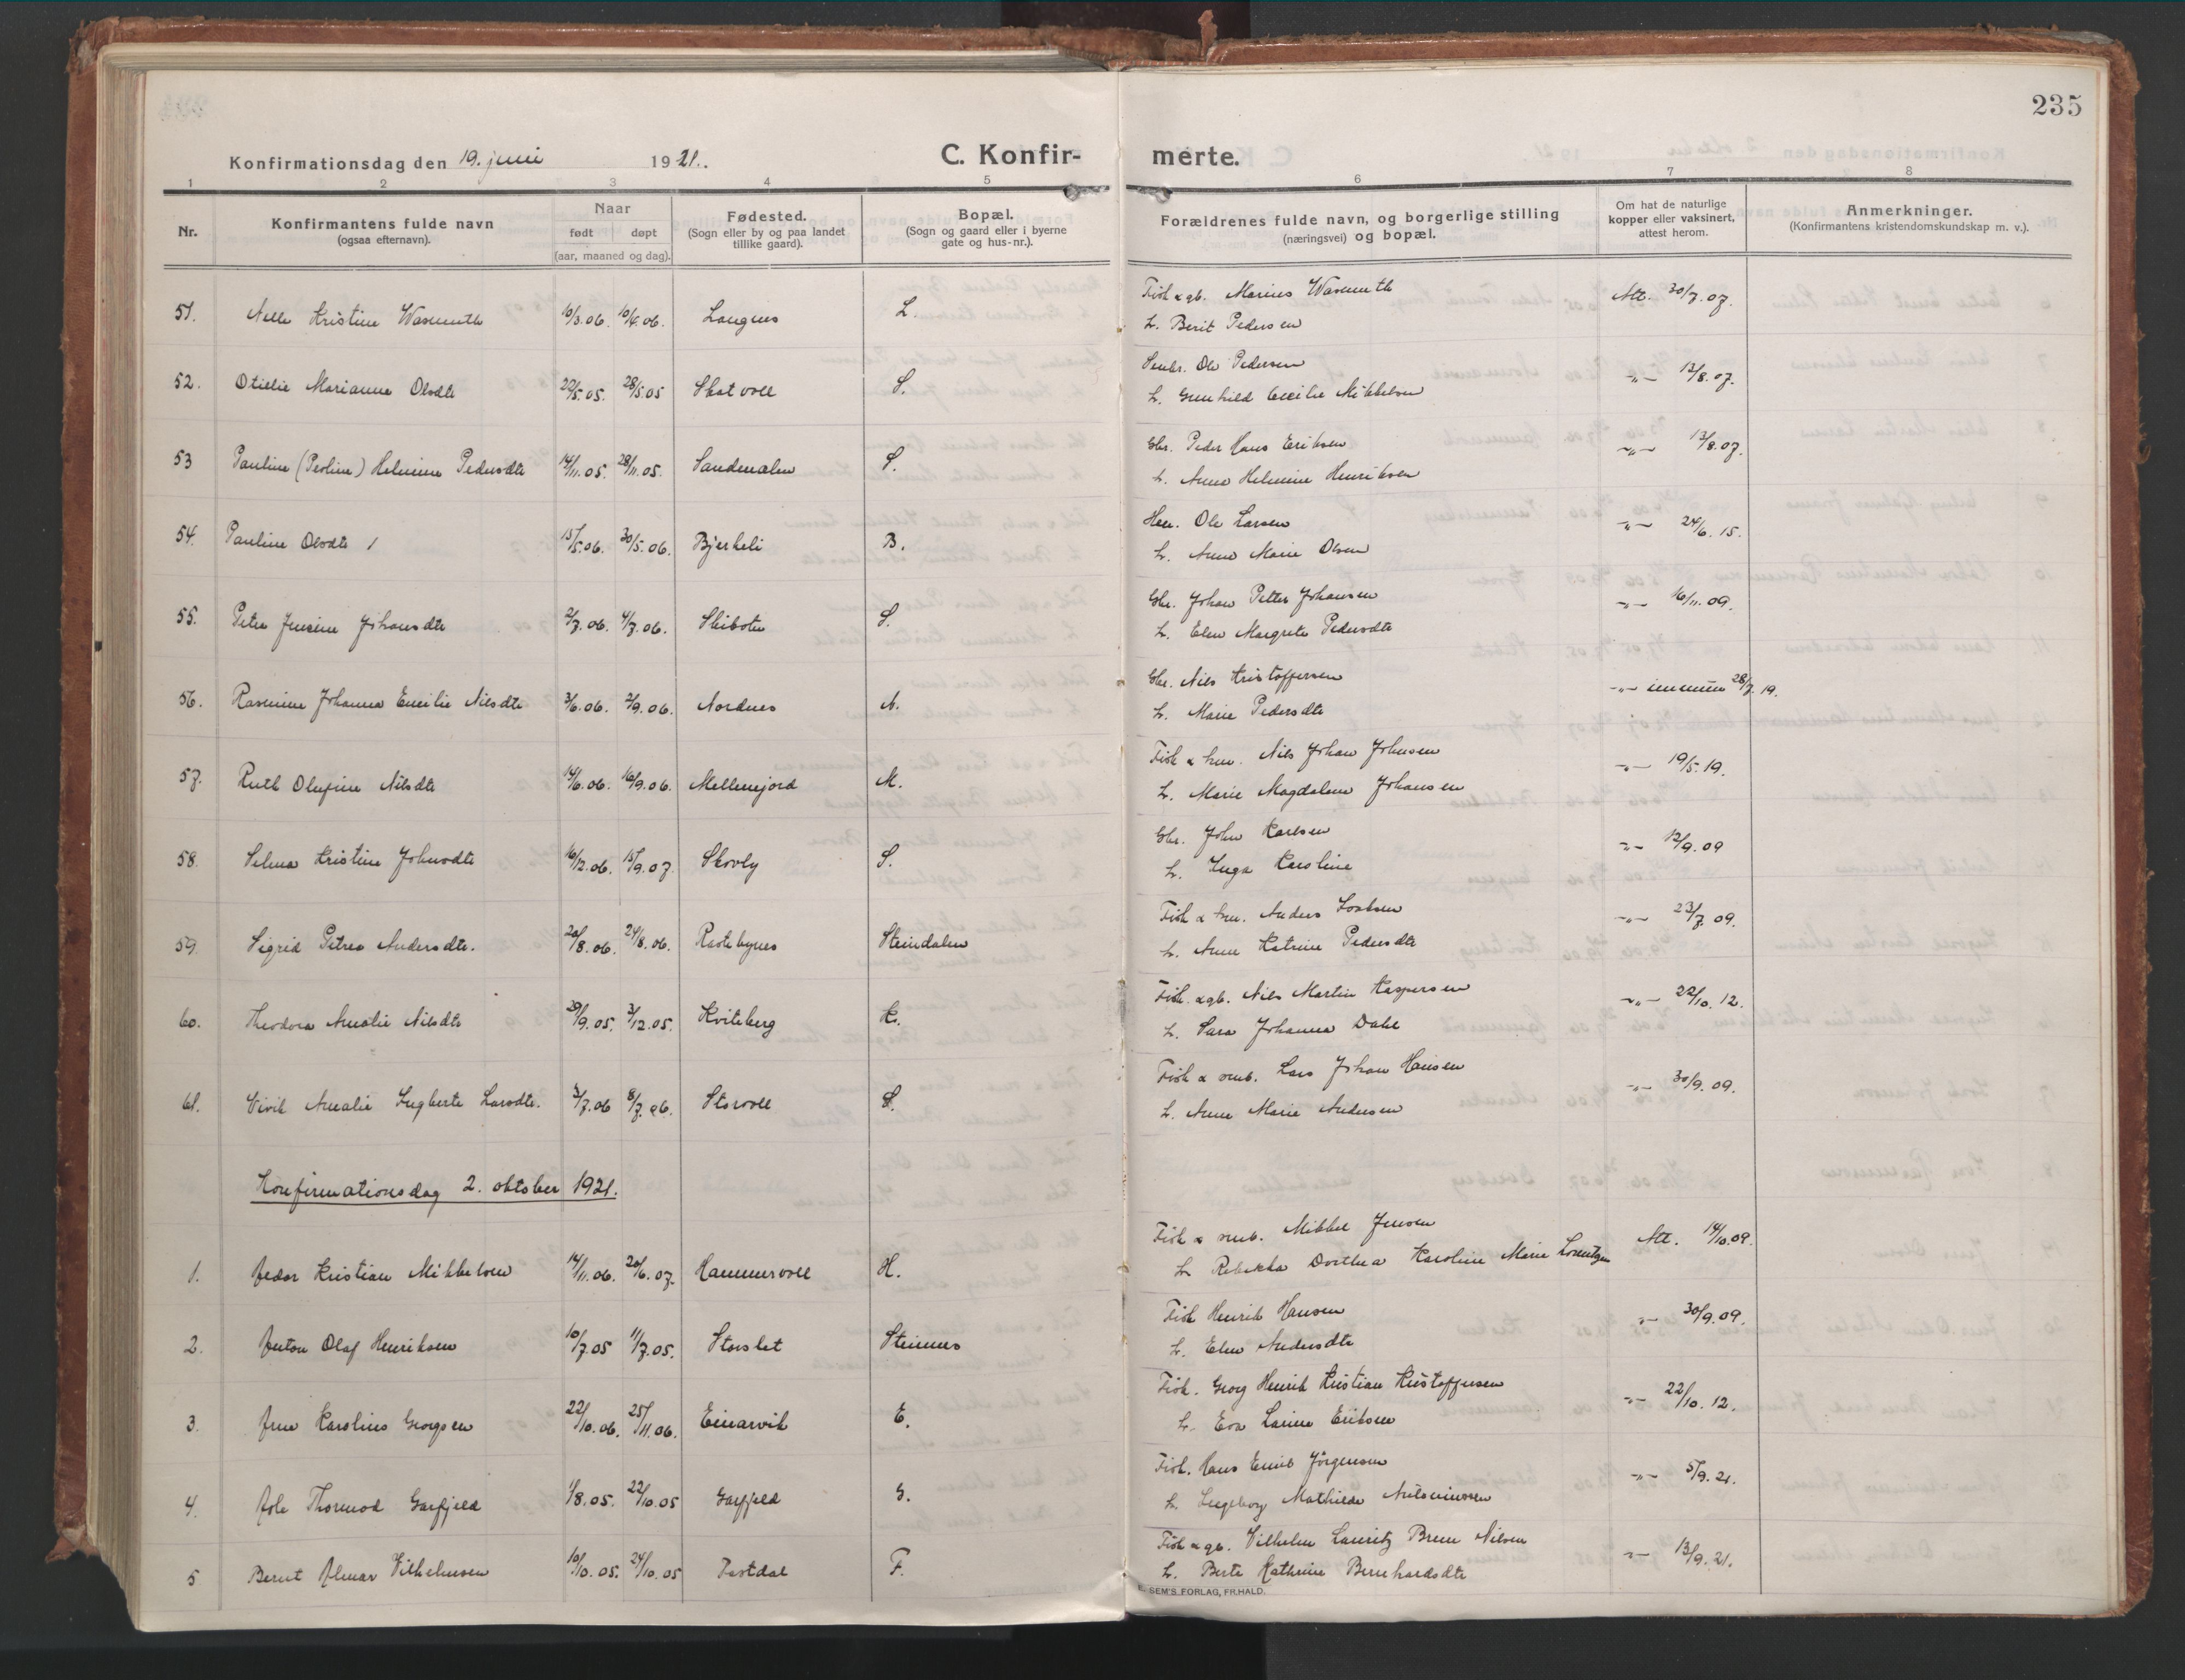 235
Konfirmationsdag den 19. juni 1921.
C. Konfir- merte.
1 2 3 4 5 6 7 8
Nr.
Konfirmantens fulde navn
(ogsaa efternavn).
Naar
født døpt
(aar, maaned og dag).
Fødested.
(Sogn eller by og paa landet
tillike gaard).
Bopæl.
(Sogn og gaard eller i byerne
gate og hus-nr.).
Forældrenes fulde navn, og borgerlige stilling
(næringsvei) og bopæl.
Om hat de naturlige
kopper eller vaksinert,
attest herom.
Anmerkninger.
(Konfirmantens kristendomskundskap m. v.).
51. Nelle Kristine Wasmuth 10/3.06. 10/4.06. Langnes L. Fisk & gb. Marius Wasmuth Att. 30/7.07.
h. Berit Pedersen
52. Otielie Marianne Olsdtr 22/5.05. 28/5.05 Skatvoll S. Ole Pedersen -"- 13/8.07.
h. Gunhild Cecilie Mikkelsen
53 Pauline (Peoline) Helmine Pedersdtr 14/11.05. 28/11.05. Sandmalen S. Gbr. Peder Hans Eriksen -"- 13/8.07.
h. Anne Helmine Henriksen
54. Pauline Olsdtr 15/5.06. 30/5.06. Bjerkeli B. Ole Larsen -"- 24/6.15.
h. Anne Marie Olsen
55. Petra Jensine Johansdtr 2/7.06. 4/7.06. Skibotn S. Gbr. Johan Petter Johansen -"- 16/11.09.
h. Elen Margrete Pedersdtr
56. Rasmine Johanna Emilie Nilsdtr 3/6.06. 2/9.06. Nordnes N. Gbr. Nils Kristoffersen -"- immun 28/7.19.
h. Marie Pedersdtr
57. Ruth Olufine Nilsdtr 14/6.06. 16/9.06. Mellemjord M. Fisk & Nils Johan Johnsen -"- 19/5.19.
h. Marie Magdalene Johansen
58. Selma Kristine Johnsdtr 16/12.06. 15/9.07. Skovly S. Gbr. John Karlsen -"- 12/9.09
h. Inga Karoline
59. Sigrid Petrea Andersdtr. 20/8.06. 24/8.06. Rastebynes Steindalen Fisk & Anders Isaksen -"- 23/7.09.
h. Anne Katrine Pedersdtr
60. Theodora Amalie Nilsdtr 29/9.05. 3/12.05. Kviteberg K. Fisk. & gb. Nils Martin Kaspersen -"- 22/10.12.
h. Sara Johanna Dahl
61. Vivik Amalie Ingberte Larsdtr. 3/7.06 8/7.06. Storvoll S. Fisk & Lars Johan Hansen -"- 30/9.09.
h. Anne Marie Andersen
Konfirmationsdag 2. oktober 1921.
1. Peder Kristian Mikkelsen 14/11.06. 20/6.07. Hammervoll H. Fisk & Mikkel Jensen Att. 14/10.09.
h. Rebekka Dorthea Karoline Marie Lorentzen
2. Anton Olaf Henriksen 10/7.05 11/7.05. Storslet Steinnes Fisk Henrik Hansen -"- 30/9.09.
h. Elen Andersdtr
3. Arne Karolius Georgsen 22/10.06. 25/11.06. Einarvik E. Fisk. Georg Henrik Kristian Kristoffersen -"- 22/10.12.
h. Eva Larine Eriksen
4. Asle Thormod Garfjeld 1/8.05. 22/10.05 Garfjeld G. Fisk. Hans Emil Jörgensen -"- 5/9.21.
h. Ingeborg Mathilde
5 Bernt Almar Vilhelmsen 10/10.05. 24/10.05 Fastdal F. Fisk & gb. Vilhelm Lauritz Bruun Nilsen -"- 13/9.21.
h. Berte Kathrine Bernhardsdtr
E. SEM'S FORLAG, FR.HALD.